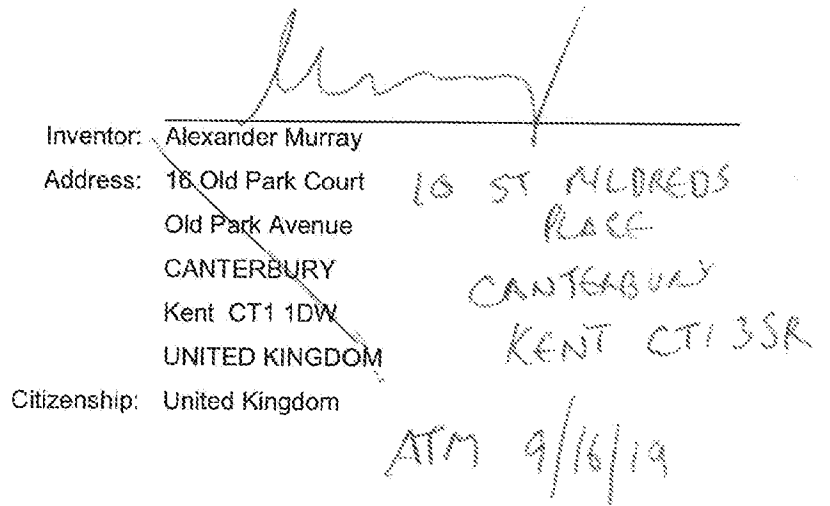 Inventor: Alexander Murray
Address: 16 Old Park Court
Old Park Avenue
CANTERBURY
Kent CT1 1DW
UNITED KINGDOM
Citizenship: United Kingdom
10 ST MILDREDS
PLACE
CANTERBURY
KENT CT1 3SR
ATM 9/16/19